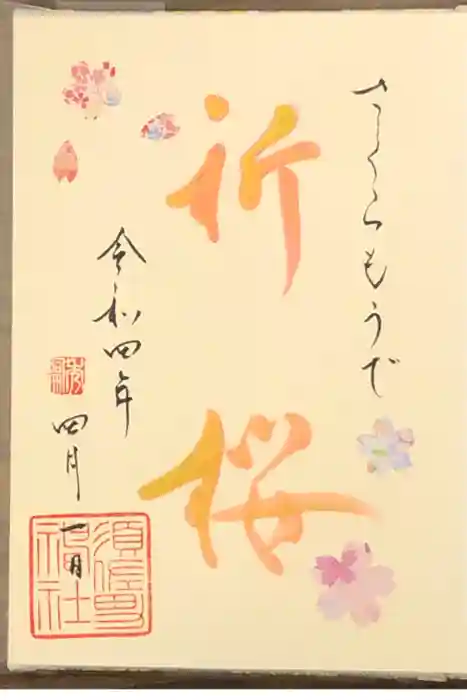 さくらもうで
祈桜
令和四年
四月一日
須佐男
神社